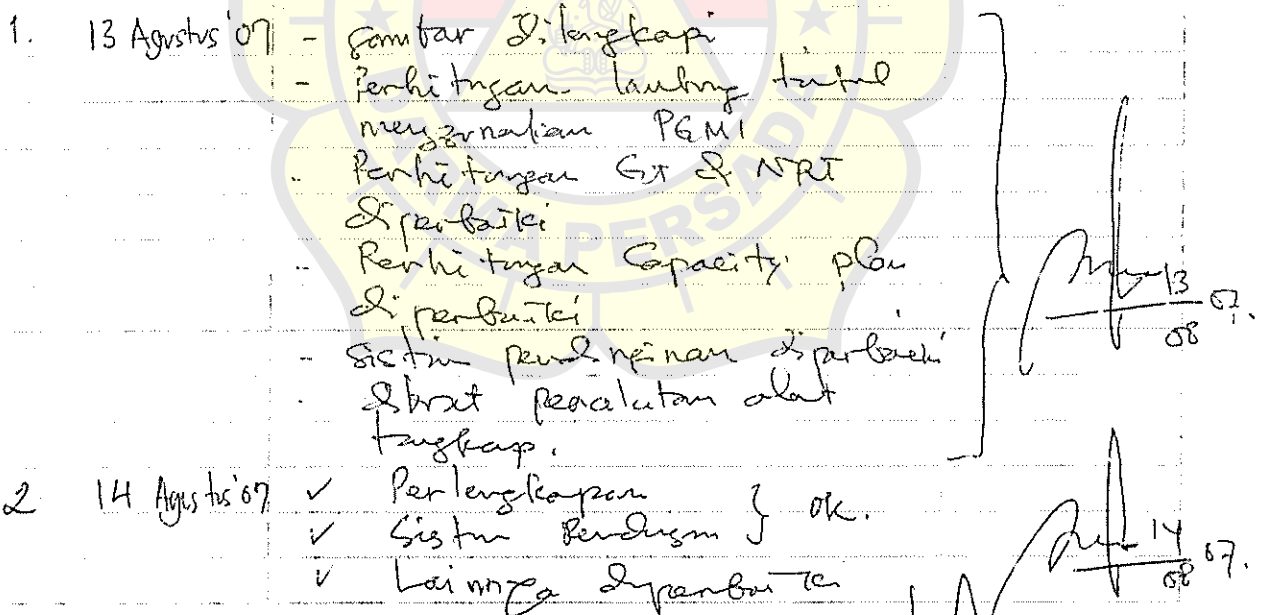 1. 13 Agustus '07 - gambar dilengkapi
- Perhitungan lambung timbul
menggunakan PGMI
- Perhitungan GT & NRT
diperbaiki
- Perhitungan Capacity plan
diperbaiki
- Sistim pendinginan diperbaiki
- peralatan alat
tangkap.
13/08 07.
2 14 Agustus '07 ✓ Perlengkapan
✓ Sistim Pendingin } OK.
✓ Lainnya diperbaiki
14/08 07.
DARMA PERSADA